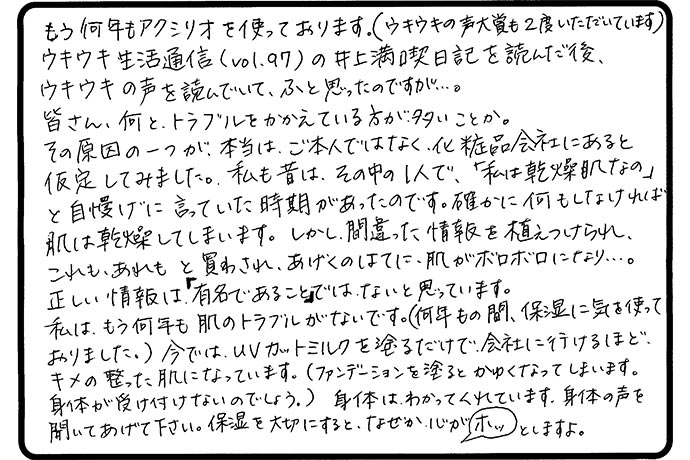 もう何年もアクシリオを使っております。(ウキウキの声大賞も2度いただいています)
ウキウキ生活通信(vol.97)の井上満喫日記を読んだ後、
ウキウキの声を読んでいて、ふと思ったのですが…。
皆さん、何と、トラブルをかかえている方が多いことか。
その原因の一つが、本当は、ご本人ではなく、化粧品会社にあると
仮定してみました。私も昔は、その中の1人で、「私は乾燥肌なの」
と自慢げに言っていた時期があったのです。確かに何もしなければ
肌は乾燥してしまいます。しかし、間違った情報を植えつけられ、
これも、あれもと買わされ、あげくのはてに、肌がボロボロになり…。
正しい情報は「有名であること」ではないと思っています。
私は、もう何年も肌のトラブルがないです。(何年もの間、保湿に気を使って
おりました。)今では、UVカットミルクを塗るだけで、会社に行けるほど、
キメの整った肌になっています。(ファンデーションを塗るとかゆくなってしまいます。
身体が受け付けないのでしょう。) 身体は、わかってくれています。身体の声を
聞いてあげて下さい。保湿を大切にすると、なぜか、心がホッとしますよ。